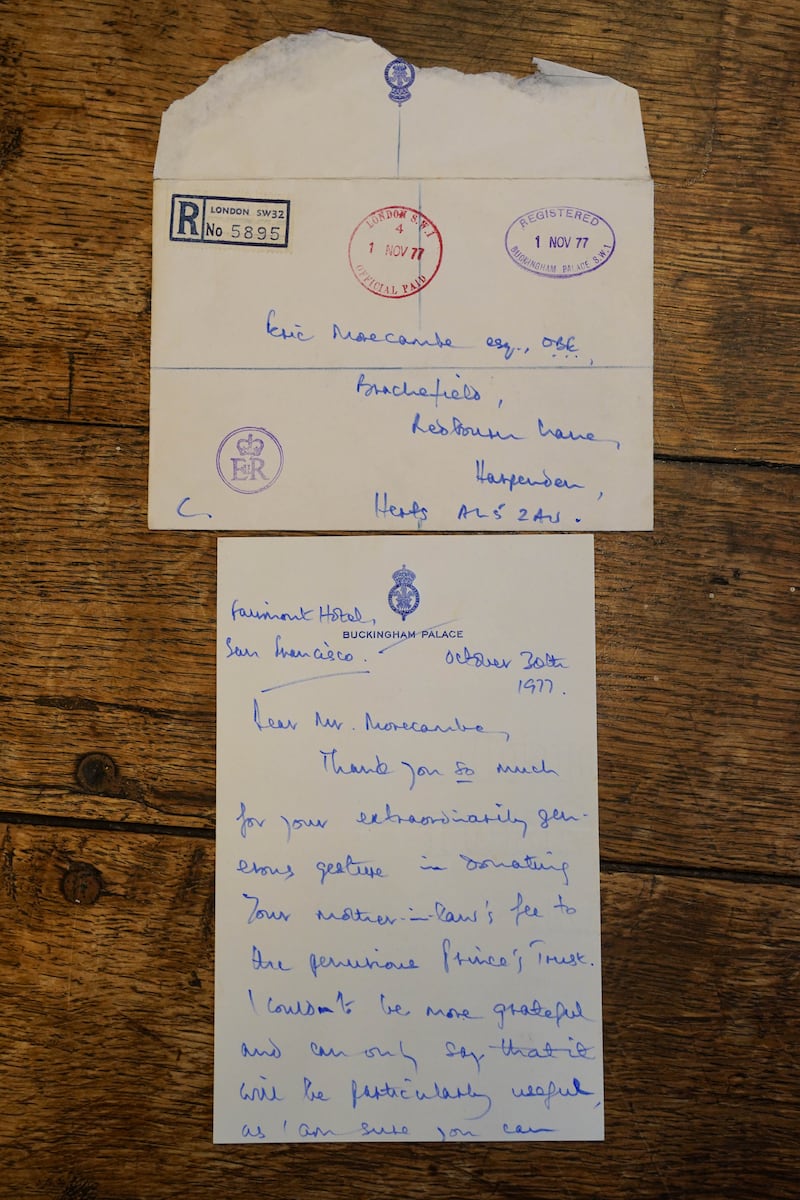 R
LONDON SW32
No 5895
LONDON S.W.1
4
1 NOV 77
OFFICIAL PAID
REGISTERED
1 NOV 77
BUCKINGHAM PALACE S.W.1
Eric Morecambe esq., OBE,
Brachefield,
Redbourn Lane,
EIIR
Harpenden,
C.
Herts AL5 2AW.
BUCKINGHAM PALACE
Fairmont Hotel,
San Francisco.
October 30th
1977.
Dear Mr. Morecambe,
Thank you so much
for your extraordinarily gen-
erous gesture in donating
your mother-in-law's fee to
the penurious Prince's Trust.
I couldn't be more grateful
and can only say that it
will be particularly useful,
as I am sure you can